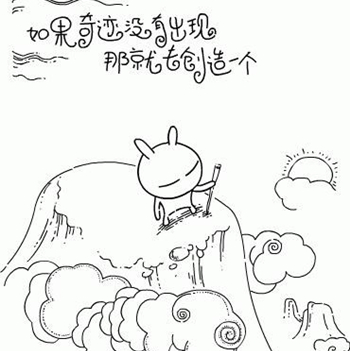 如果奇迹没有出现
那就去创造一个